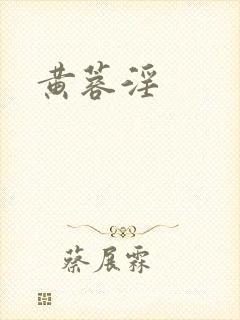 黄蓉淫
蔡展霖